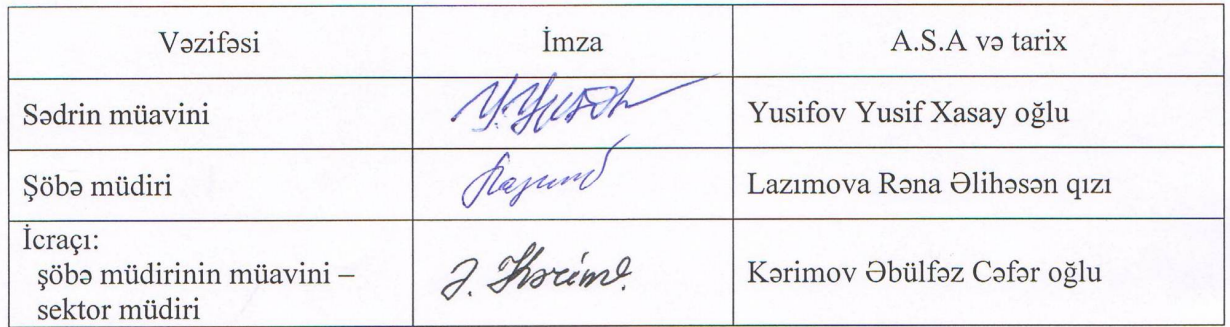 Vəzifəsi İmza A.S.A və tarix
Sədrin müavini Yusifov Yusif Xasay oğlu
Şöbə müdiri Lazımova Rəna Əlihəsən qızı
İcraçı:
şöbə müdirinin müavini –
sektor müdiri
Ə. Kərimo. Kərimov Əbülfəz Cəfər oğlu